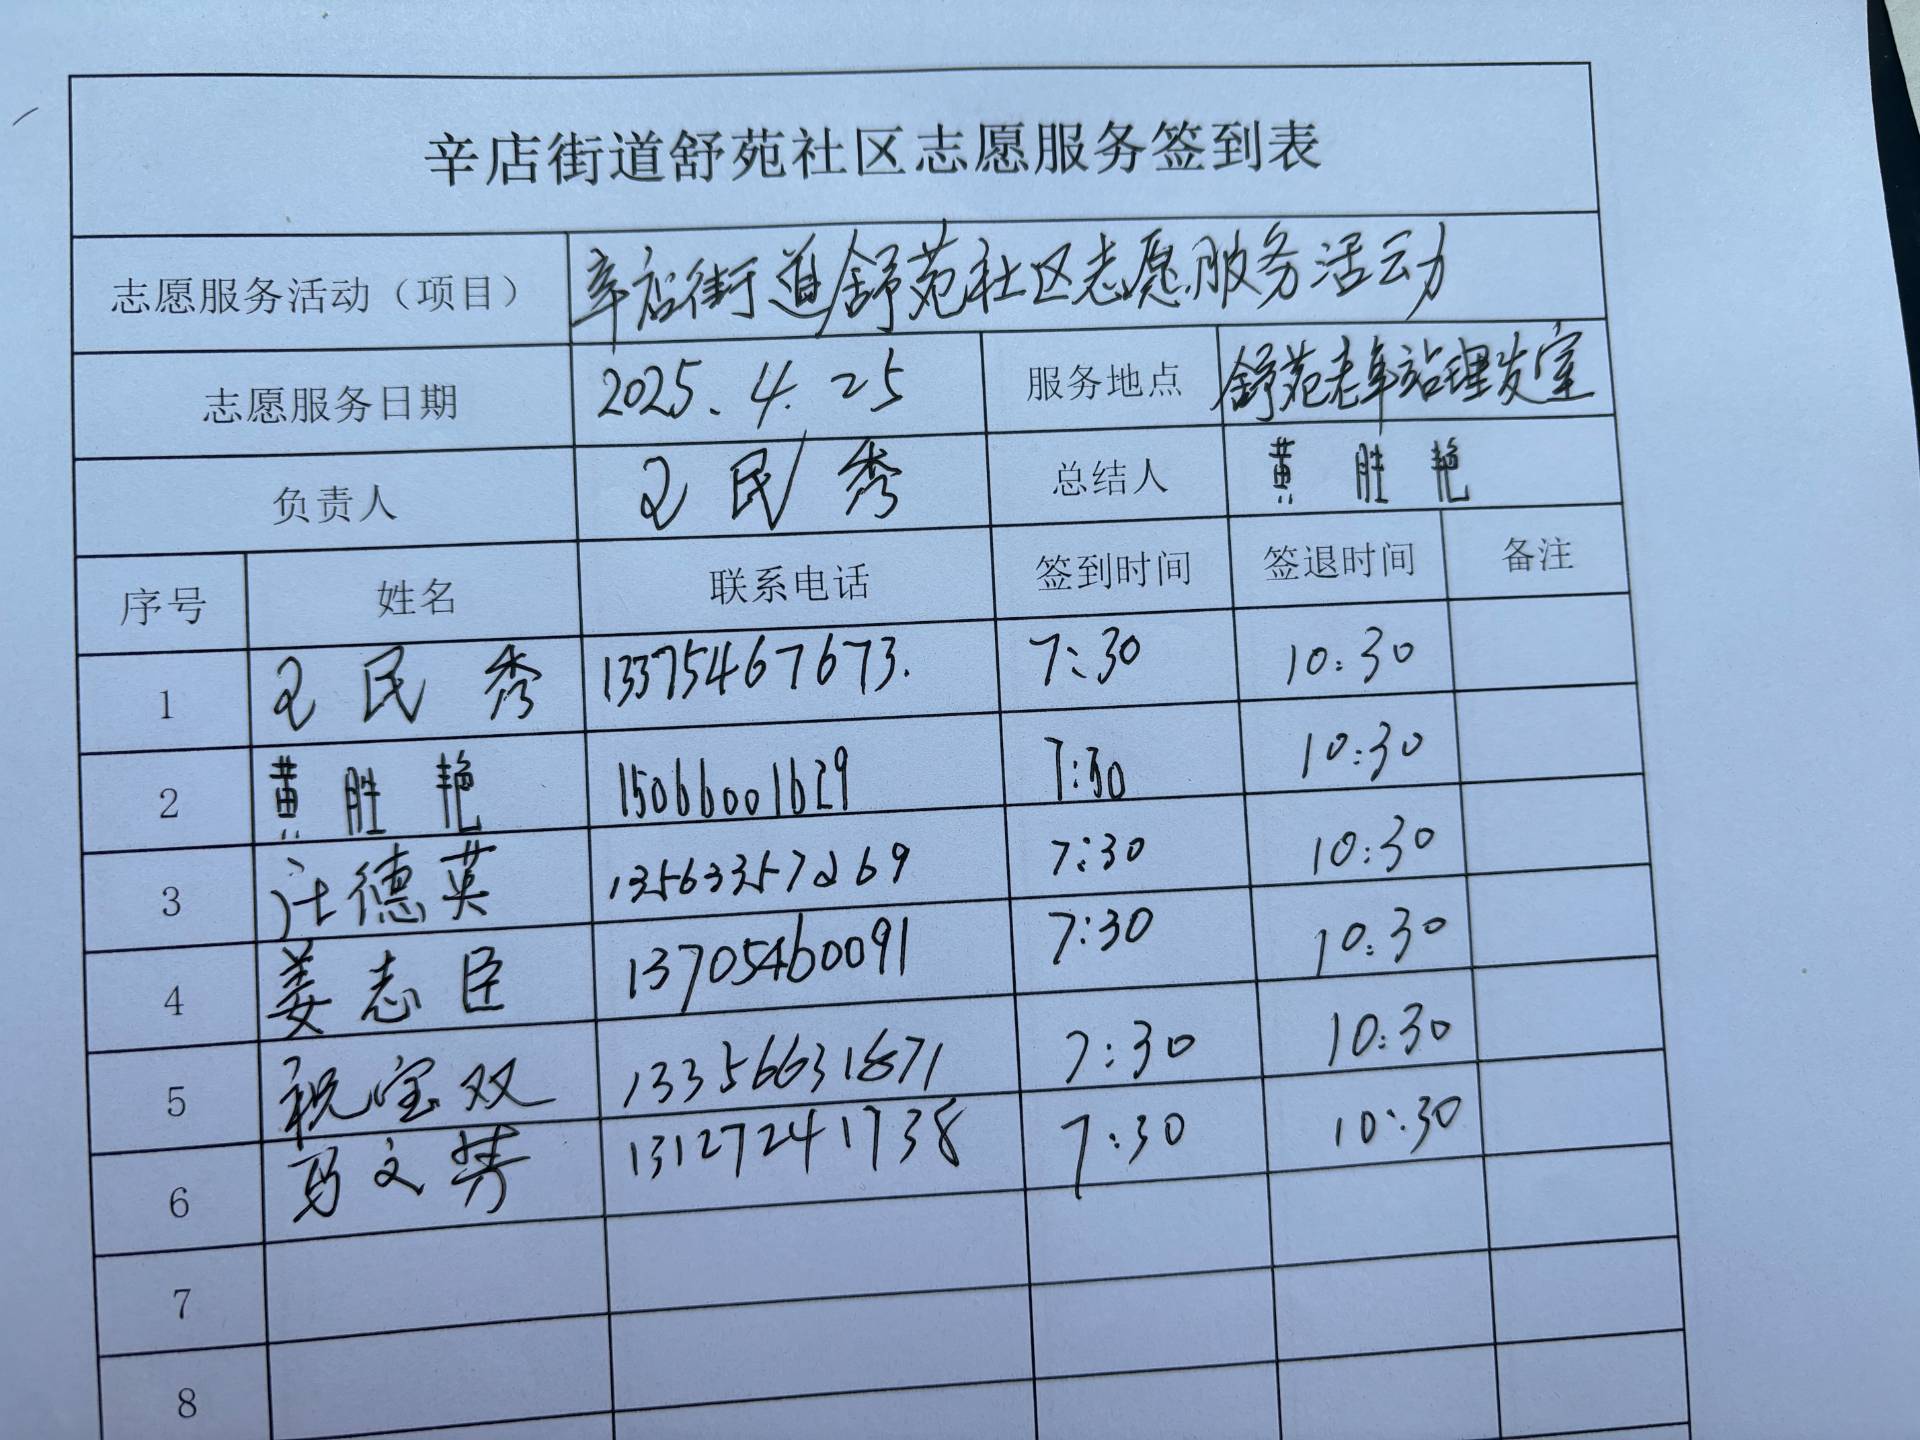 辛店街道舒苑社区志愿服务签到表
志愿服务活动（项目） 辛店街道舒苑社区志愿服务活动
志愿服务日期 2025.4.25 服务地点 舒苑老车站理发室
负责人 王民秀 总结人 黄胜艳
序号 姓名 联系电话 签到时间 签退时间 备注
1 王民秀 13375467673. 7:30 10:30
2 黄胜艳 15066001629 7:30 10:30
3 汪德英 13563357269 7:30 10:30
4 姜志臣 13705460091 7:30 10:30
5 祝宝双 13356631871 7:30 10:30
6 文 13127241738 7:30 10:30
7
8